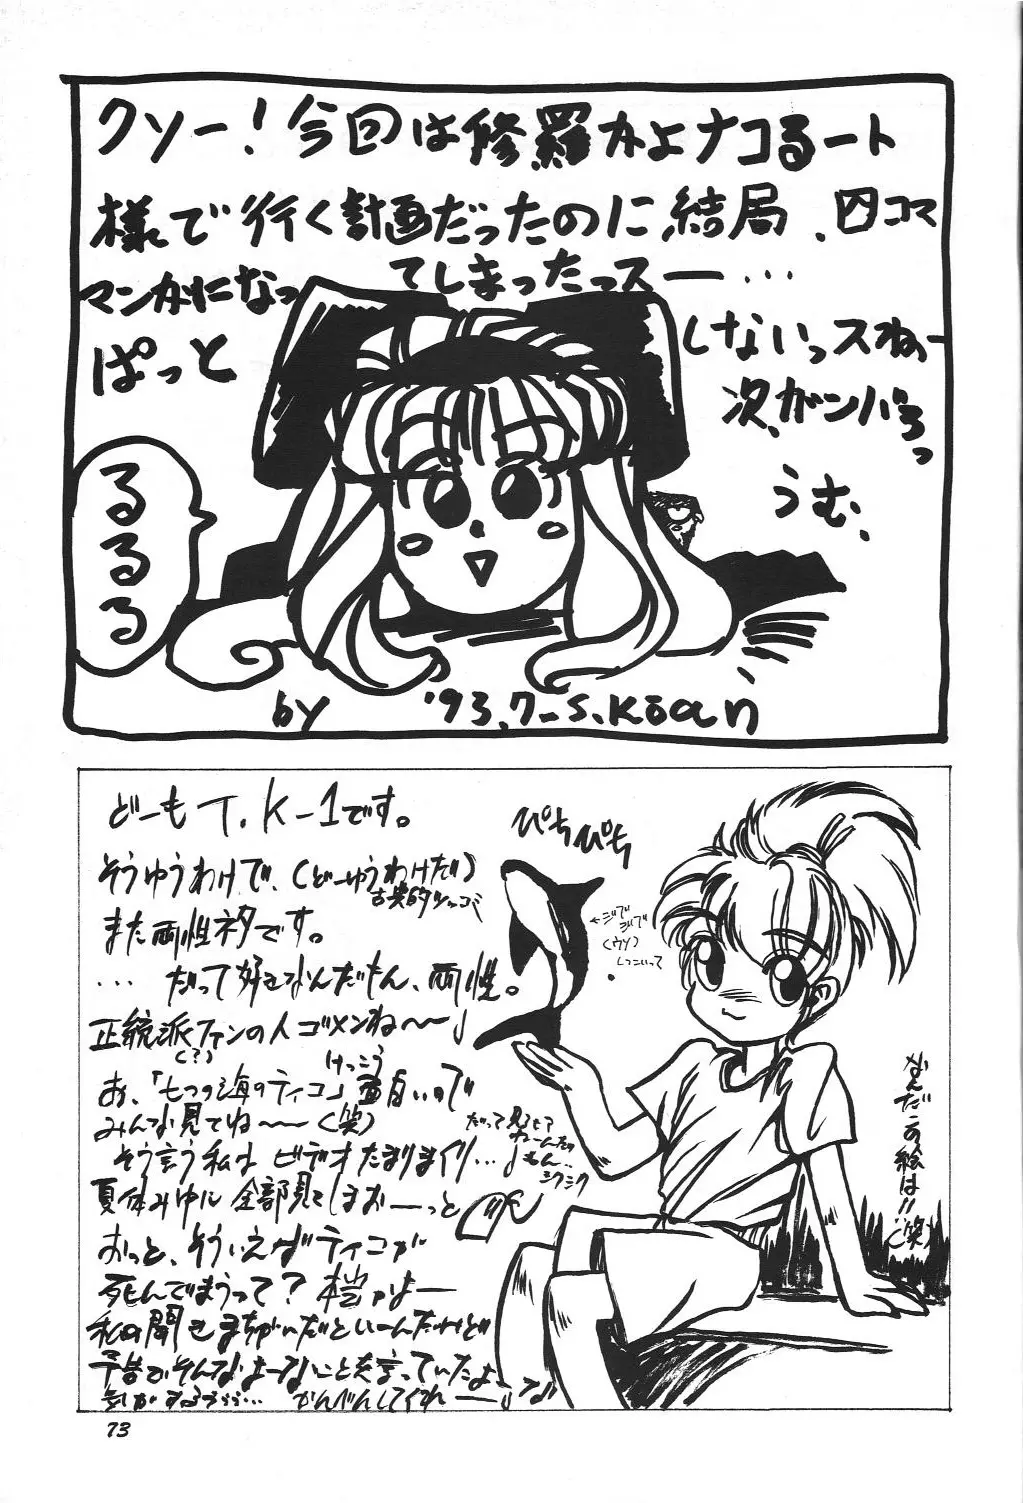 クソー!今回は修羅かよナコるート
様で行く計画だったのに、結局、四コマ
マンガになっ てしまったっスー…
ぱっと しないっスねぇー
次、ガンバろっ
うむ、
るるる
by '93.7- S.Kōan
どーも T.K-1です。
そうゆうわけで、(どーゆうわけだ)
古典的ツッコミ
また両性ネタです。
… だって好きなんだもん、両性。
正統派ファンの人ゴメンね〜〜♪
(?)
けっこう
あ、「七つの海のティコ」面白いので
みんな見てね〜〜(笑)
そう言う私は ビデオたまりまくり…♪
だって見るヒマ
もん…
シクシク
夏休みゆに全部見てしまおーーっと
おっと、そういえばティコが
死んでまうって?本当かよー
私の聞きまちがいだといーんだけど
予告でそんなよーなことを言っていたよーな
気がするぅぅぅ… かんべんしてくれー
ぴちぴち
←ジブ
ジブ
(ウソ)
しつこいって
なんだこの絵は!!(笑)
73